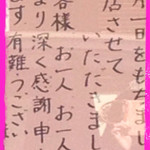 月一日をもちまし
店させて
いただきまし
お客様 お一人 お一人
より深く感謝申
ます 有難うござい